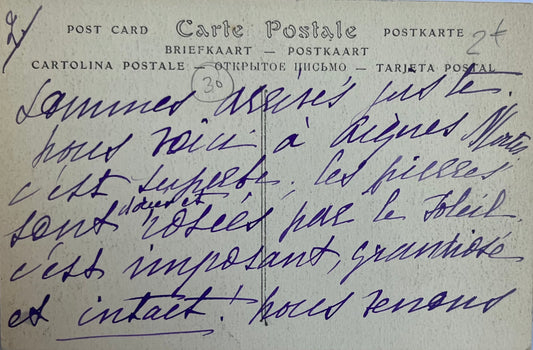 2/
POST CARD Carte Postale POSTKARTE
2€
BRIEFKAART — POSTKAART
CARTOLINA POSTALE — ОТКРЫТОЕ ПИСЬМО — TARJETA POSTAL
30
sommes arrivés juste.
nous voici à Aigues Mortes
c'est superbe. les pierres
sont dorées et rosées par le soleil.
c'est imposant, grandiose
et intact! nous venons